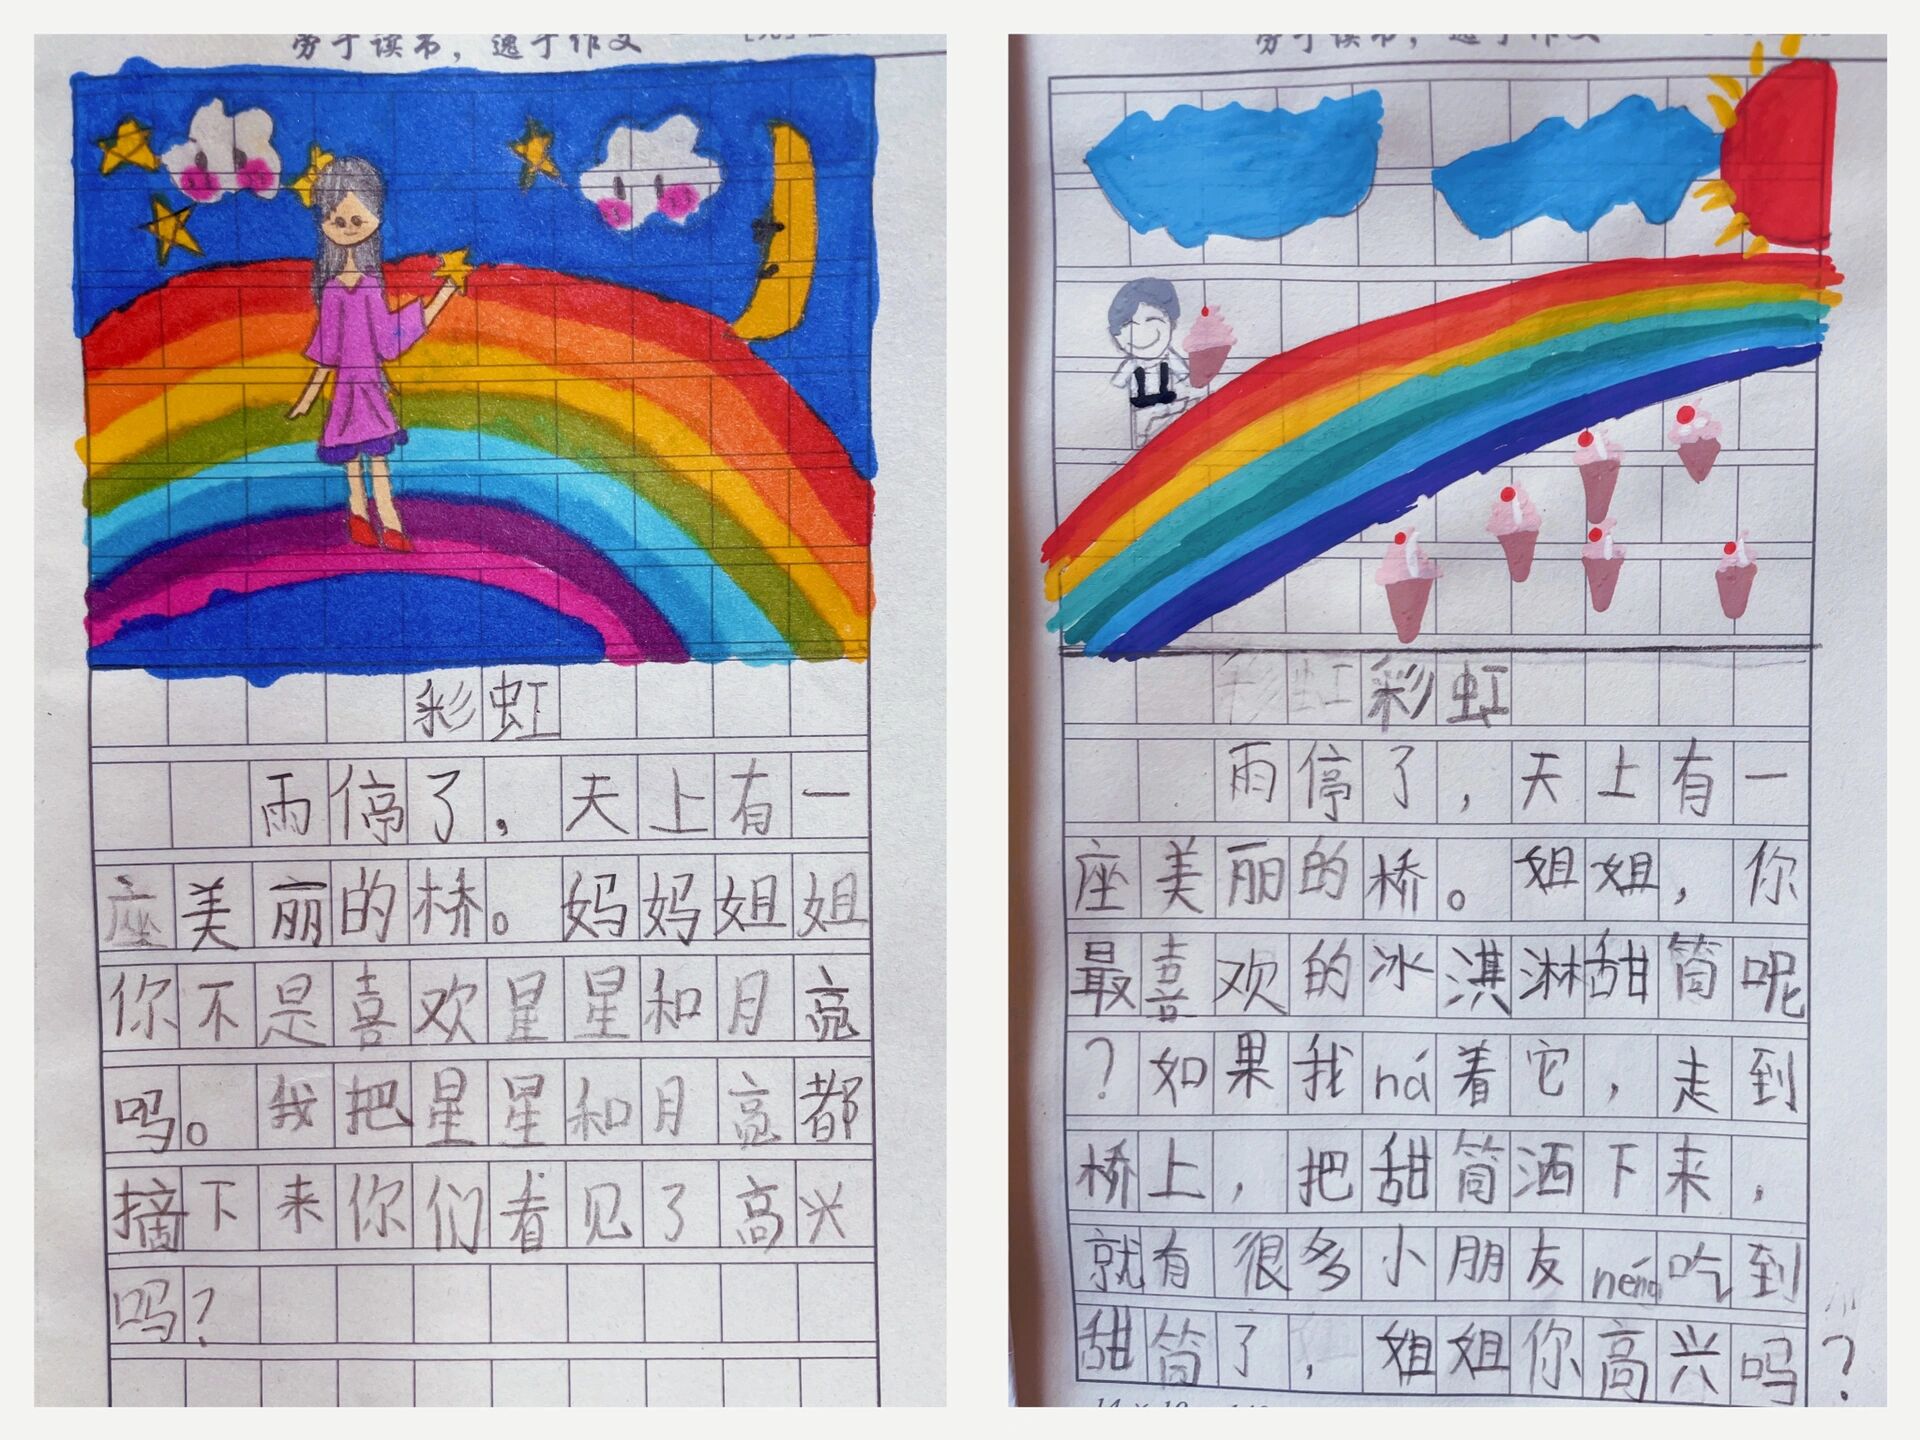 劳于读书，逸于作文
彩虹
雨停了，天上有一
座美丽的桥。妈妈姐姐
你不是喜欢星星和月亮
吗。我把星星和月亮都
摘下来你们看见了高兴
吗？
劳于读书，逸于作文
彩虹彩虹
雨停了，天上有一
座美丽的桥。姐姐，你
最喜欢的冰淇淋甜筒呢
？如果我ná着它，走到
桥上，把甜筒洒下来，
就有很多小朋友néng吃到
甜筒了，姐姐你高兴吗？